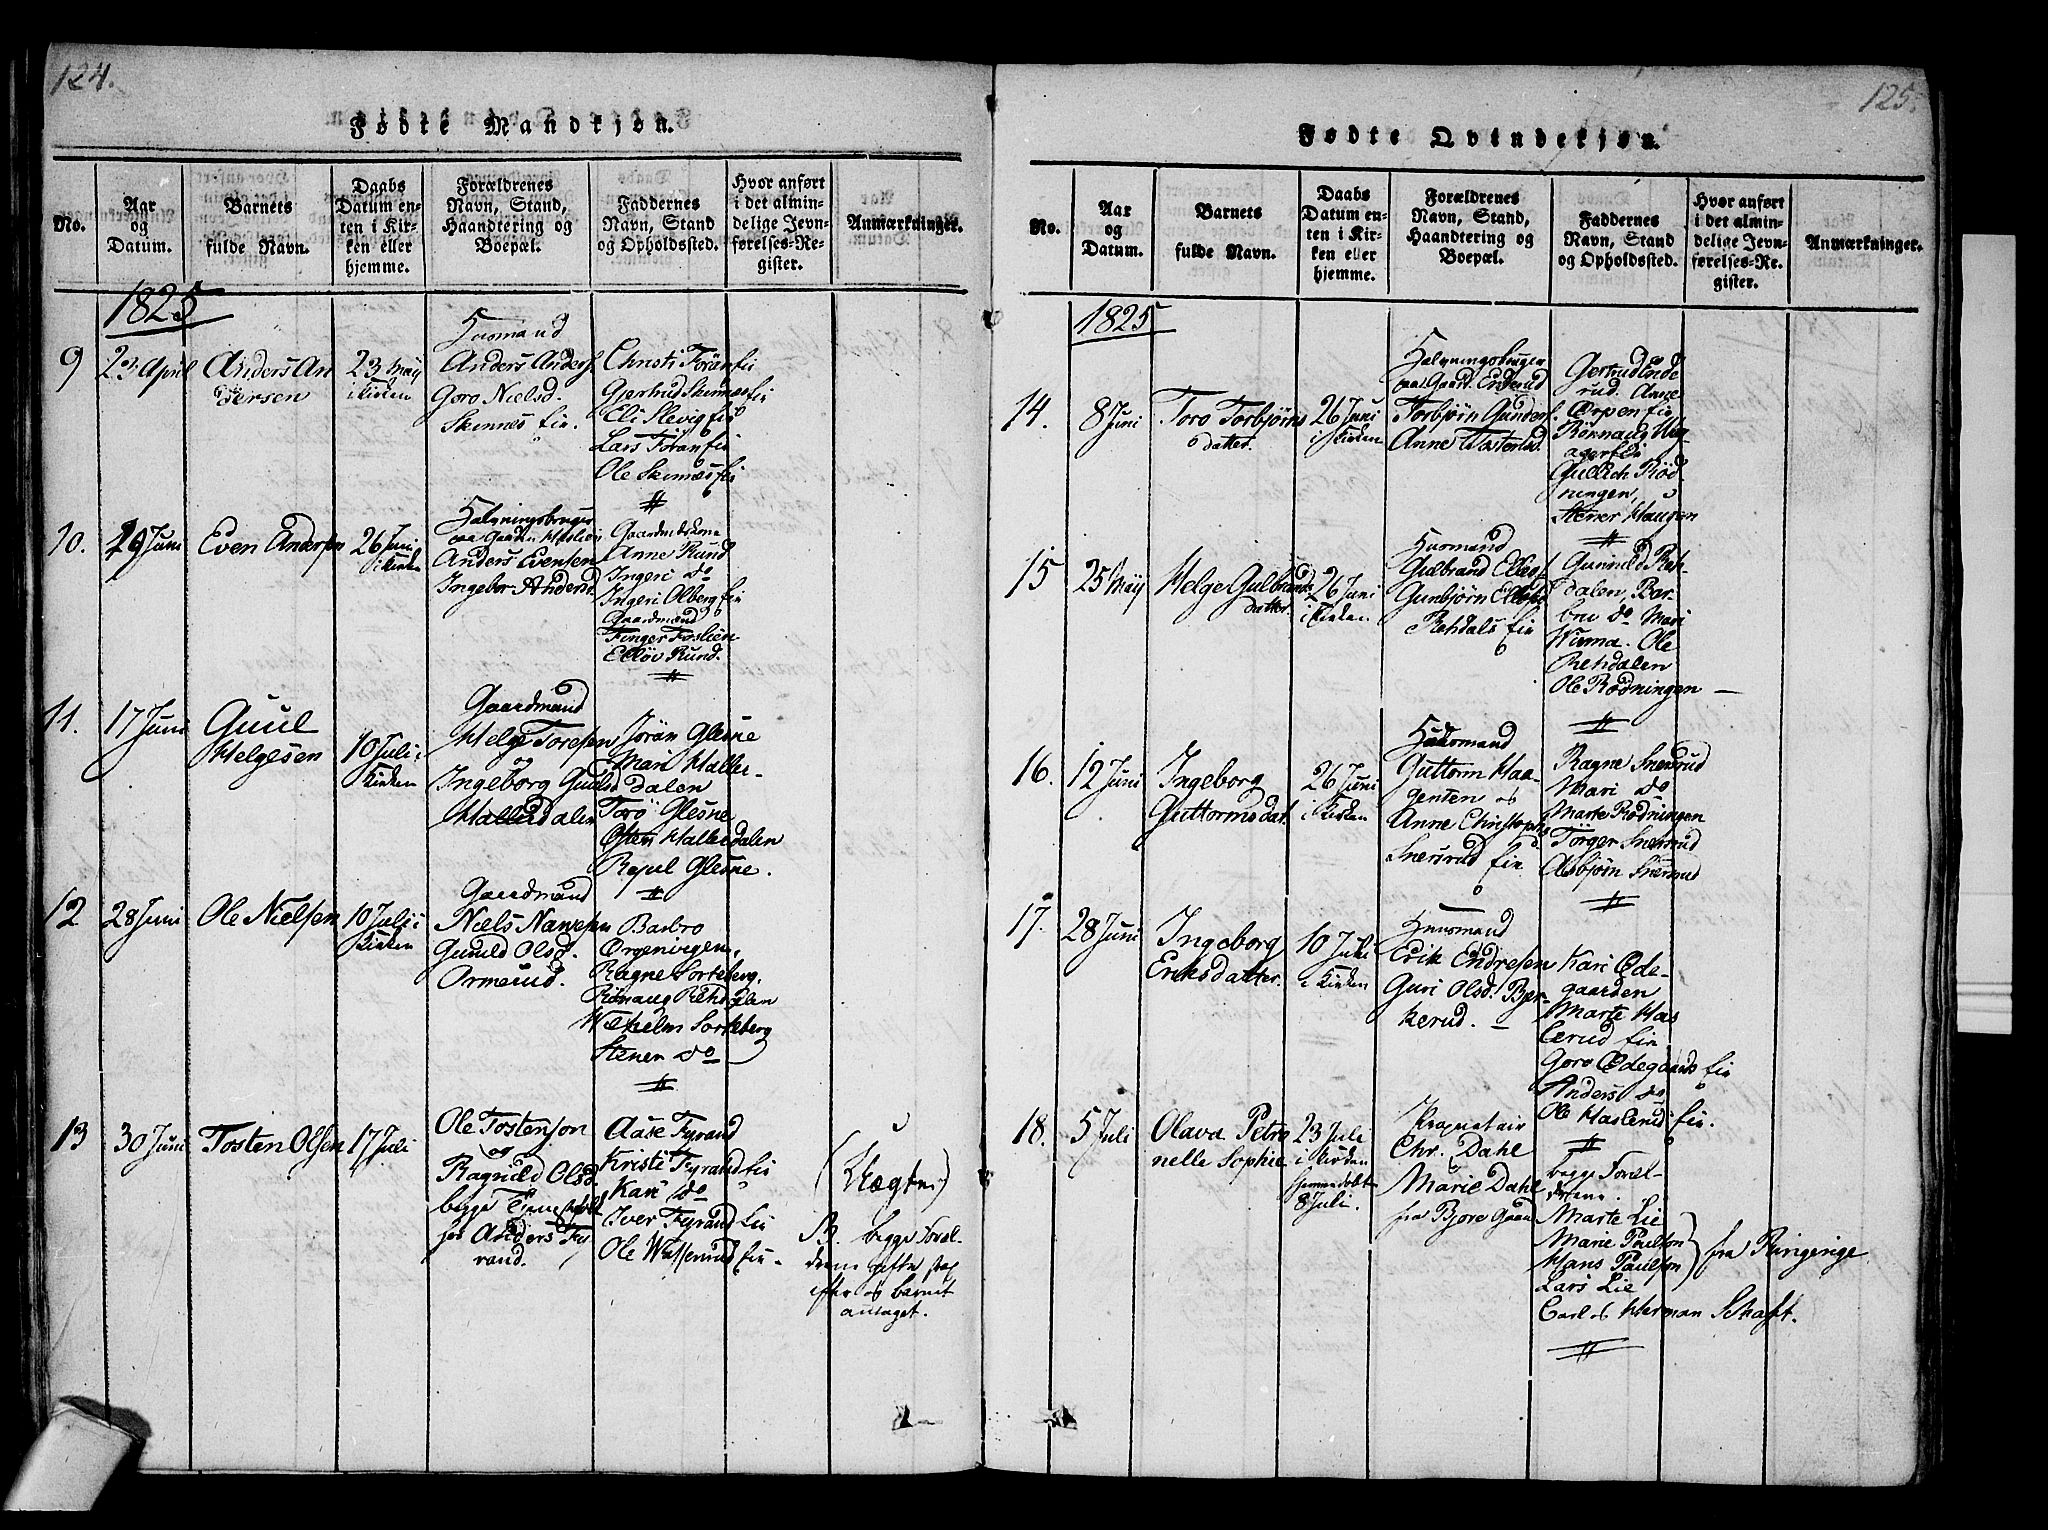 124.
Fødte Mandkjøn.
No.
Aar
og
Datum.
Barnets
fulde Navn.
Daabs
Datum en-
ten i Kir-
ken eller
hjemme.
Forældrenes
Navn, Stand,
Haandtering og
Boepæl.
Faddernes
Navn, Stand
og Opholdssted.
Hvor anført
i det almin-
delige Jevn-
førelses-Re-
gister.
Anmærkninger.
1825
9
23 April
Anders An
dersen
23 Maij
i Kirken
Huusmand
Anders Anders.
Goro Nielsd.
Skinnes eie.
Christi Föran eie
Gjertrud Skinnes eie
Eli Slevig eie
Lars Föran eie
Ole Skinnes eie
10.
Juni
Even Andersen
26 Juni
i Kirken
Halvningsbruger
paa Gaarden
Anders Evensen
Ingebor Andersd.
Gaardmdskone
Anne Rund
Ingeri do
Ingeri Olberg eie
Gaardmænd
Finger Foslien
Elløv Rund.
11.
17 Juni
Guul
Helgesen
10 Juli i
Kirken
Gaardmand
Helge Toresen
og
Ingeborg Guulsd
Hallerdalen
Jörån Glesne
Mari Haller-
dalen
Torö Glesne
Östen Hallerdalen
Glesne.
12
28 Juni
Ole Nielsen
10 Juli i
Kirken
Gaardmand
Niels Narvesen
Gunild Olsd.
Ormerud.
Barbro
Örgenvigen,
Ragne Sorteberg,
Rönaug Rehdalen
Wilhelm Sorteberg
Stener do
13
30 Juni
Tosten Olsen
17 Juli
Ole Tostenson
og
Ragnild Olsd.
begge Tjenestefolk
hos Anders Fy
rand.
Aase Fyrand
Kristi Fyrand eie
Kari do
Iver Fyrand eie
Ole Wassenrud eie
(Uægte)
NB. begge Foræl-
drene gifte strax
efter og barnet
antaget.
125.
Fødte Qvindekjøn.
No.
Aar
og
Datum.
Barnets
fulde Navn.
Daabs
Datum en-
ten i Kir-
ken eller
hjemme.
Forældrenes
Navn, Stand,
Haandtering og
Boepæl.
Faddernes
Navn, Stand
og Opholdssted.
Hvor anført
i det almin-
delige Jevn-
førelses-Re-
gister.
Anmærkninger.
1825
14.
8 Juni
Toro Torbjörns
datter.
26 Juni
i Kirken
Halvningsbruger
paa Gaard. Enderud
Torbjörn Gunders.
Anne Tostensd.
Gertrud Ende
rud. Anne
Ørpen eie
Rönnaug
ager eie
Gullich Röd-
ningen,
Stener Haugen
15
25 Maij
Helge Gulbrands
datter.
26 Juni
i Kirken
Huusmand
Gulbrand Ellefs.
Gunbjörn Ellefsd.
Rehdals eie
Gunnild Reh-
dalen, Bar-
bro do Mari
Wiema. Ole
Rehdalen
Ole Rödningen
16.
12 Juni
Ingeborg
Guttormsdat.
26 Juni
i Kirken
Huusmand
Guttorm Haa-
gensen og
Anne Christophs
d.
Snersrud eie
Ragne Snersrud
Mari do
Marte Rödningen
Törger Snersrud
Asbjörn Snersrud
17.
28 Juni
Ingeborg
Eriksdatter.
10 Juli
i Kirken
Huusmand
Erik Endresen
Guri Olsd. Bjer-
kerud.
Kari Øde-
gaarden
Marte Has
lerud eie
Goro Ødegaards eie
Anders do
Ole Haslerud eie.
18.
5 Juli
Olava Petro
nelle Sophie
23 Juli
i Kirken
hjemmedöbt
8 Juli.
Proprietair
Chr. Dahl
Marie Dahl
fra Björe Gaard
begge Foræl-
drene.
Marte Lie
Marie Paulson
Hans Paulson
Lars Lie
fra Ringerige
Carl og Herman Schaft.